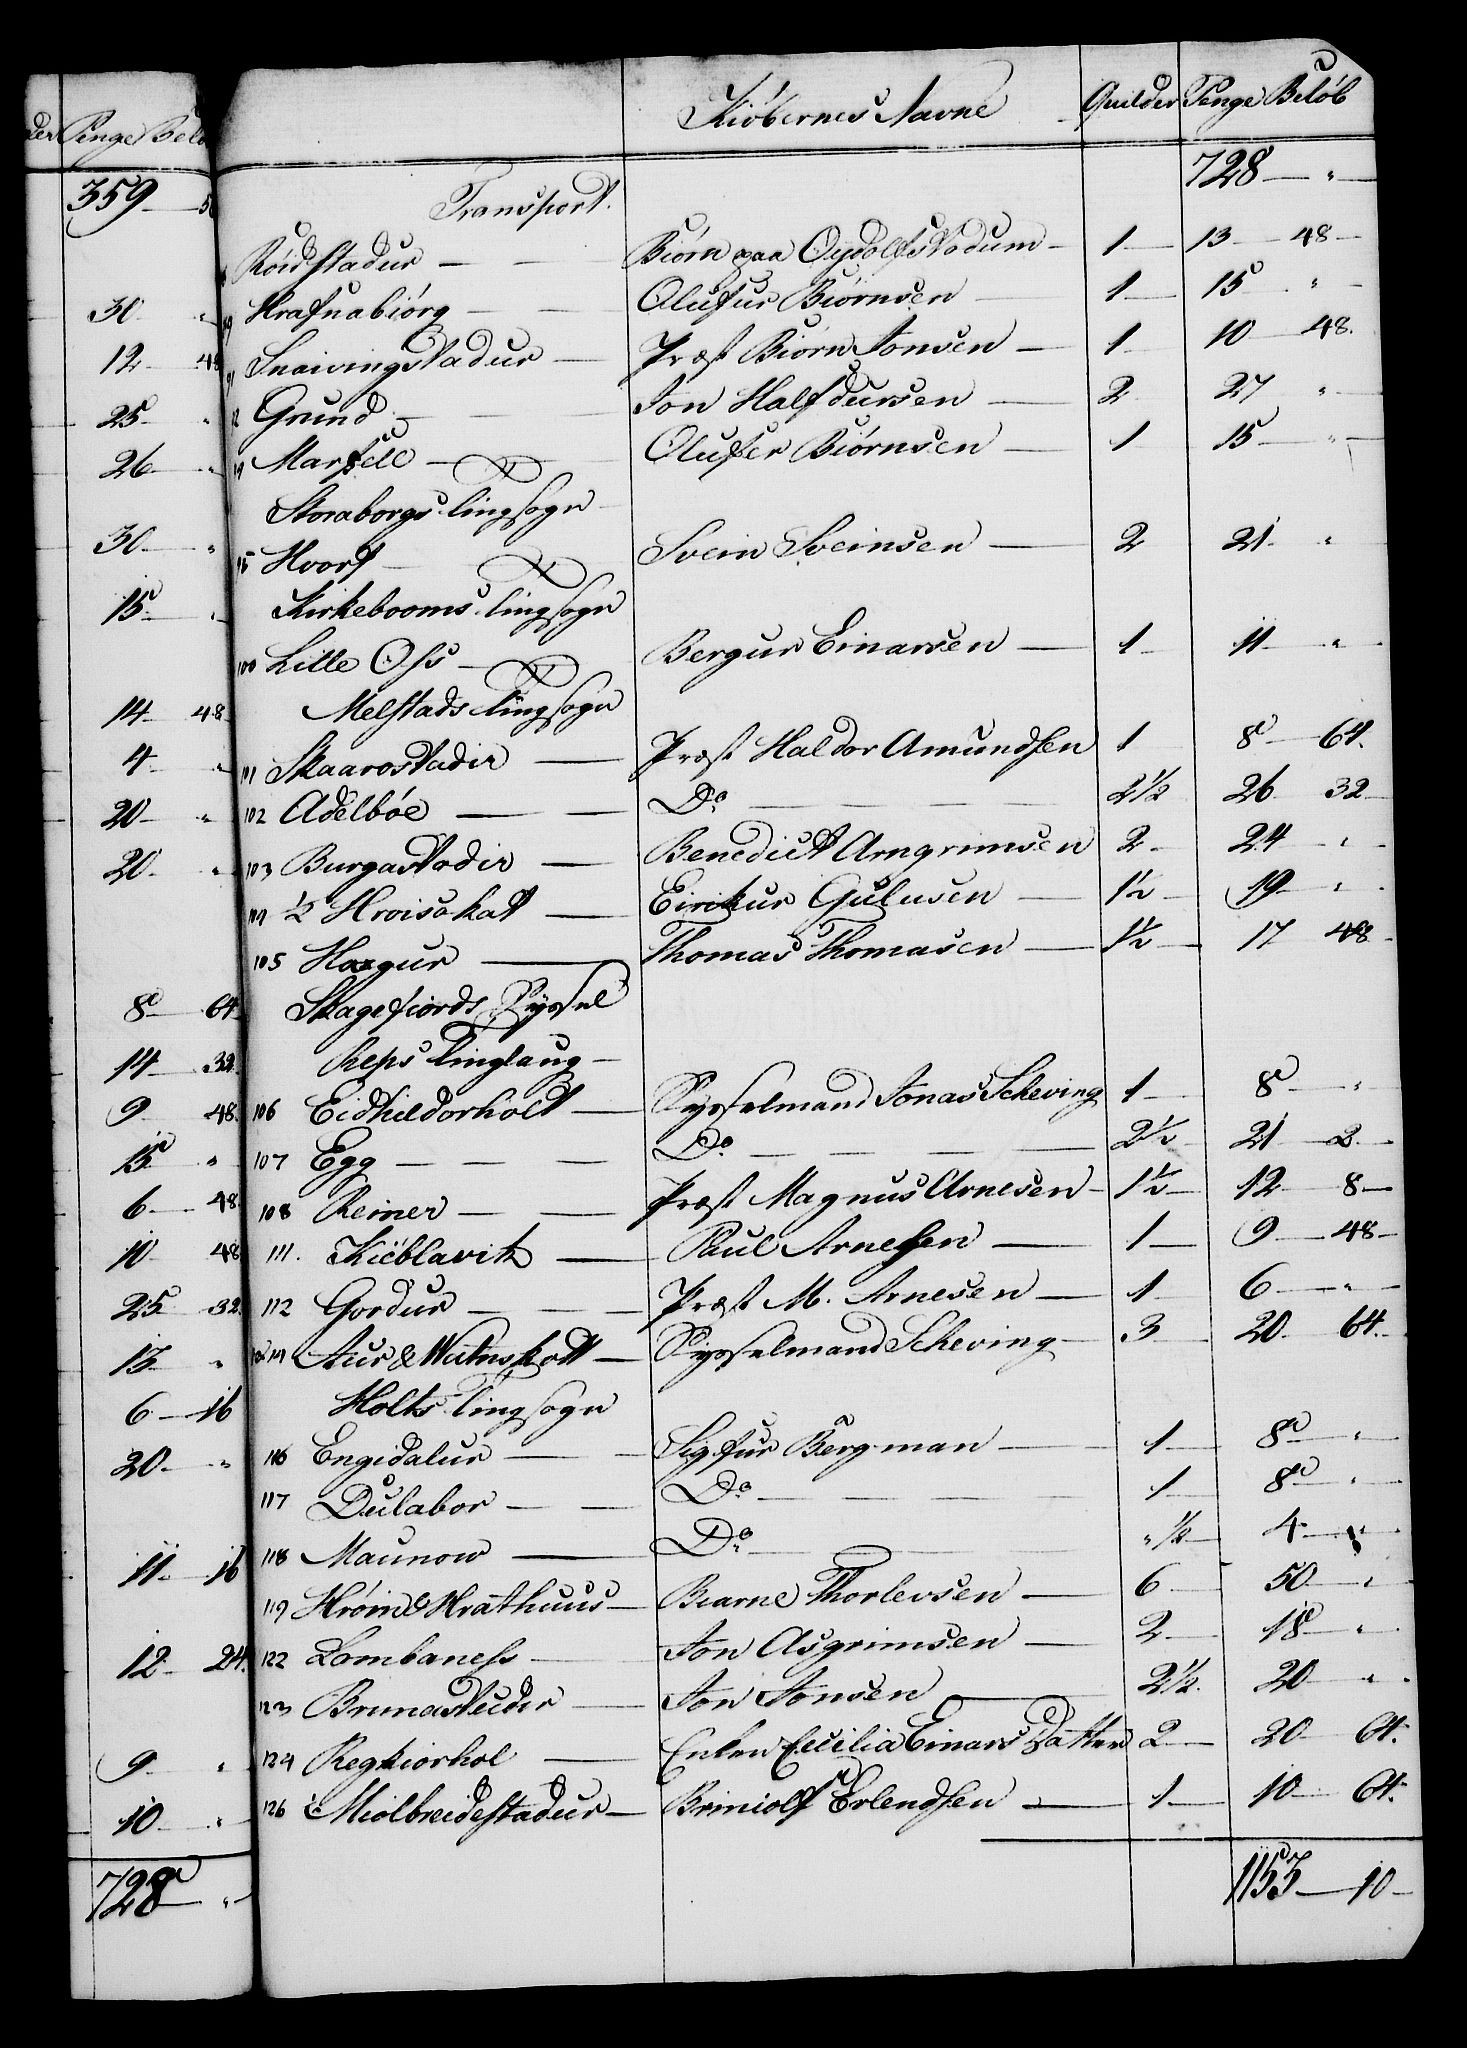 der Penge Belø
359 — 5
30 — "
12 — 48
25 — "
26 — "
30 — "
15 — "
14 — 48
4 — "
20 — "
20 — "
8 — 64
14 — 32
9 — 48
15 — "
6 — 48
10 — 48
25 — 32
13 — "
6 — 16
20 — "
11 — 16
12 — 24
9 — "
10 — "
728 — "
Kiöbernes Navne Quilder Penge Belöb
Transport. 728 — "
Röidstadur — Biörn paa Oydolfstodum — 1 — 13 — 48
Hrafnabiörg — Olufur Biörnsen — 1 — 15 — "
91 Snaivingstadur — Præst Biörn Jonsen — 1 — 10 — 48.
Grund — Jon Halfdursen — 2 — 27 — "
Marfell — Olufer Biörnsen — 1 — 15 — "
Storaborgs Tingsogn
Hvorf — Svein Sveinsen — 2 — 21 — "
Kirkebooms Tingsogn
100 Lille Oss — Bergur Einarsen — 1 — 11 — "
Melstads Tingsogn
101 Skaarastadir — Præst Haldor Amundsen 1 — 8 — 64.
102 Adelböe — Do — 2½ 26 32
103 Burgastadir — Benedict Arngrimsen 2 — 24 — "
104 ½ Hroisakat — Eirikur Gulusen — 1½ — 19 — "
105 Haugur — Thomas Thomasen — 1½ — 17 48
Skagefiords Syssel
Reps Tinglaug —
106 Eidhildorholt — Sysselmand Jonas Scheving 1 — 8 — "
107 Egg — Do — 2½ — 21 — 2
108 Reiner — Præst Magnus Arnesen — 1½ — 12 — 8 —
111. Kiëblavik — Paul Arnesen — 1 — 9 — 48 —
112 Gordur — Præst M. Arnesen — 1 — 6 — "
114 Aur & Watnskott — Sysselmand Scheving — 3 — 20 — 64.
Holts Tingsogn
116 Engidalur — Sigfur Bergman — 1 — 8 — "
117 Dulabor — Do — 1 — 8 — "
118 Maunow — Do — " ½ — 4 — "
119 Hröin & Hrathuus — Biarne Thorlevsen — 6 — 50 — "
122 Lombaness — Jon Asgrimsen — 2 — 18 — "
123 Brunastudir — Jon Jonsen — 2½. 20 — "
124 Regkiorhol — Enken Cecilia Einars Datter 2 — 20 — 64.
126 Miolbreidestadur — Briniolf Erlendsen — 1 — 10 — 64.
1153 — 10 —